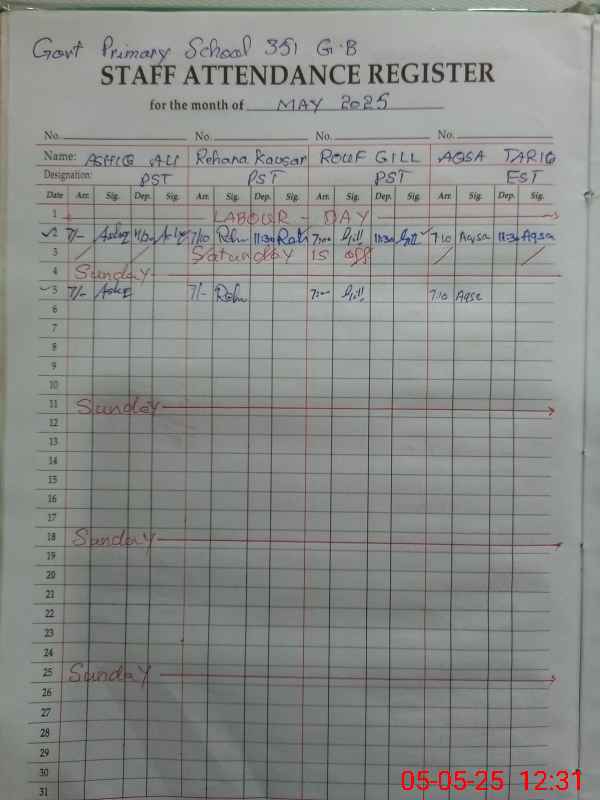 Govt Primary School 351 G.B
STAFF ATTENDANCE REGISTER
for the month of MAY 2025
No. No. No. No.
Name: ASHIQ ALI Rehana Kausar ROUF GILL AQSA TARIQ
Designation: PST PST PST EST
Date Arr. Sig. Dep. Sig. Arr. Sig. Dep. Sig. Arr. Sig. Dep. Sig. Arr. Sig. Dep. Sig.
1 LABOUR - DAY
2 7/- 7/10 11:30 7:00 Gill 11:30 Gill 7:10 Aqsa 11:30 Aqsa
3 Saturday is off
4 Sunday
5 7/- 7/- 7:00 Gill 7:10 Aqsa
6
7
8
9
10
11 Sunday
12
13
14
15
16
17
18 Sunday
19
20
21
22
23
24
25 Sunday
26
27
28
29
30
31
05-05-25 12:31